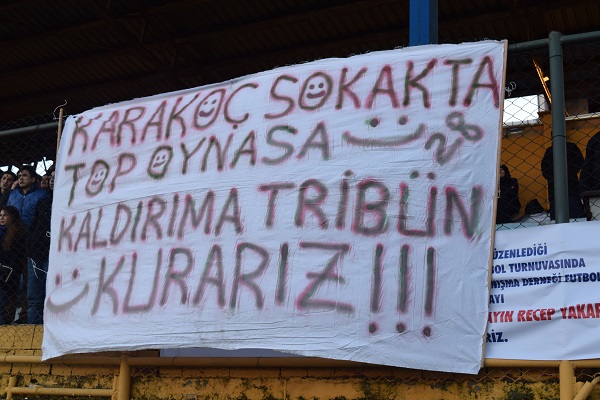 KARAKOÇ SOKAKTA
TOP OYNASA
KALDIRIMA TRİBÜN
KURARIZ!!!
ÜZENLEDİĞİ
OL TURNUVASINDA
NIŞMA DERNEĞİ FUTBOL
AYI
AYIN RECEP YAKAR
RİZ.